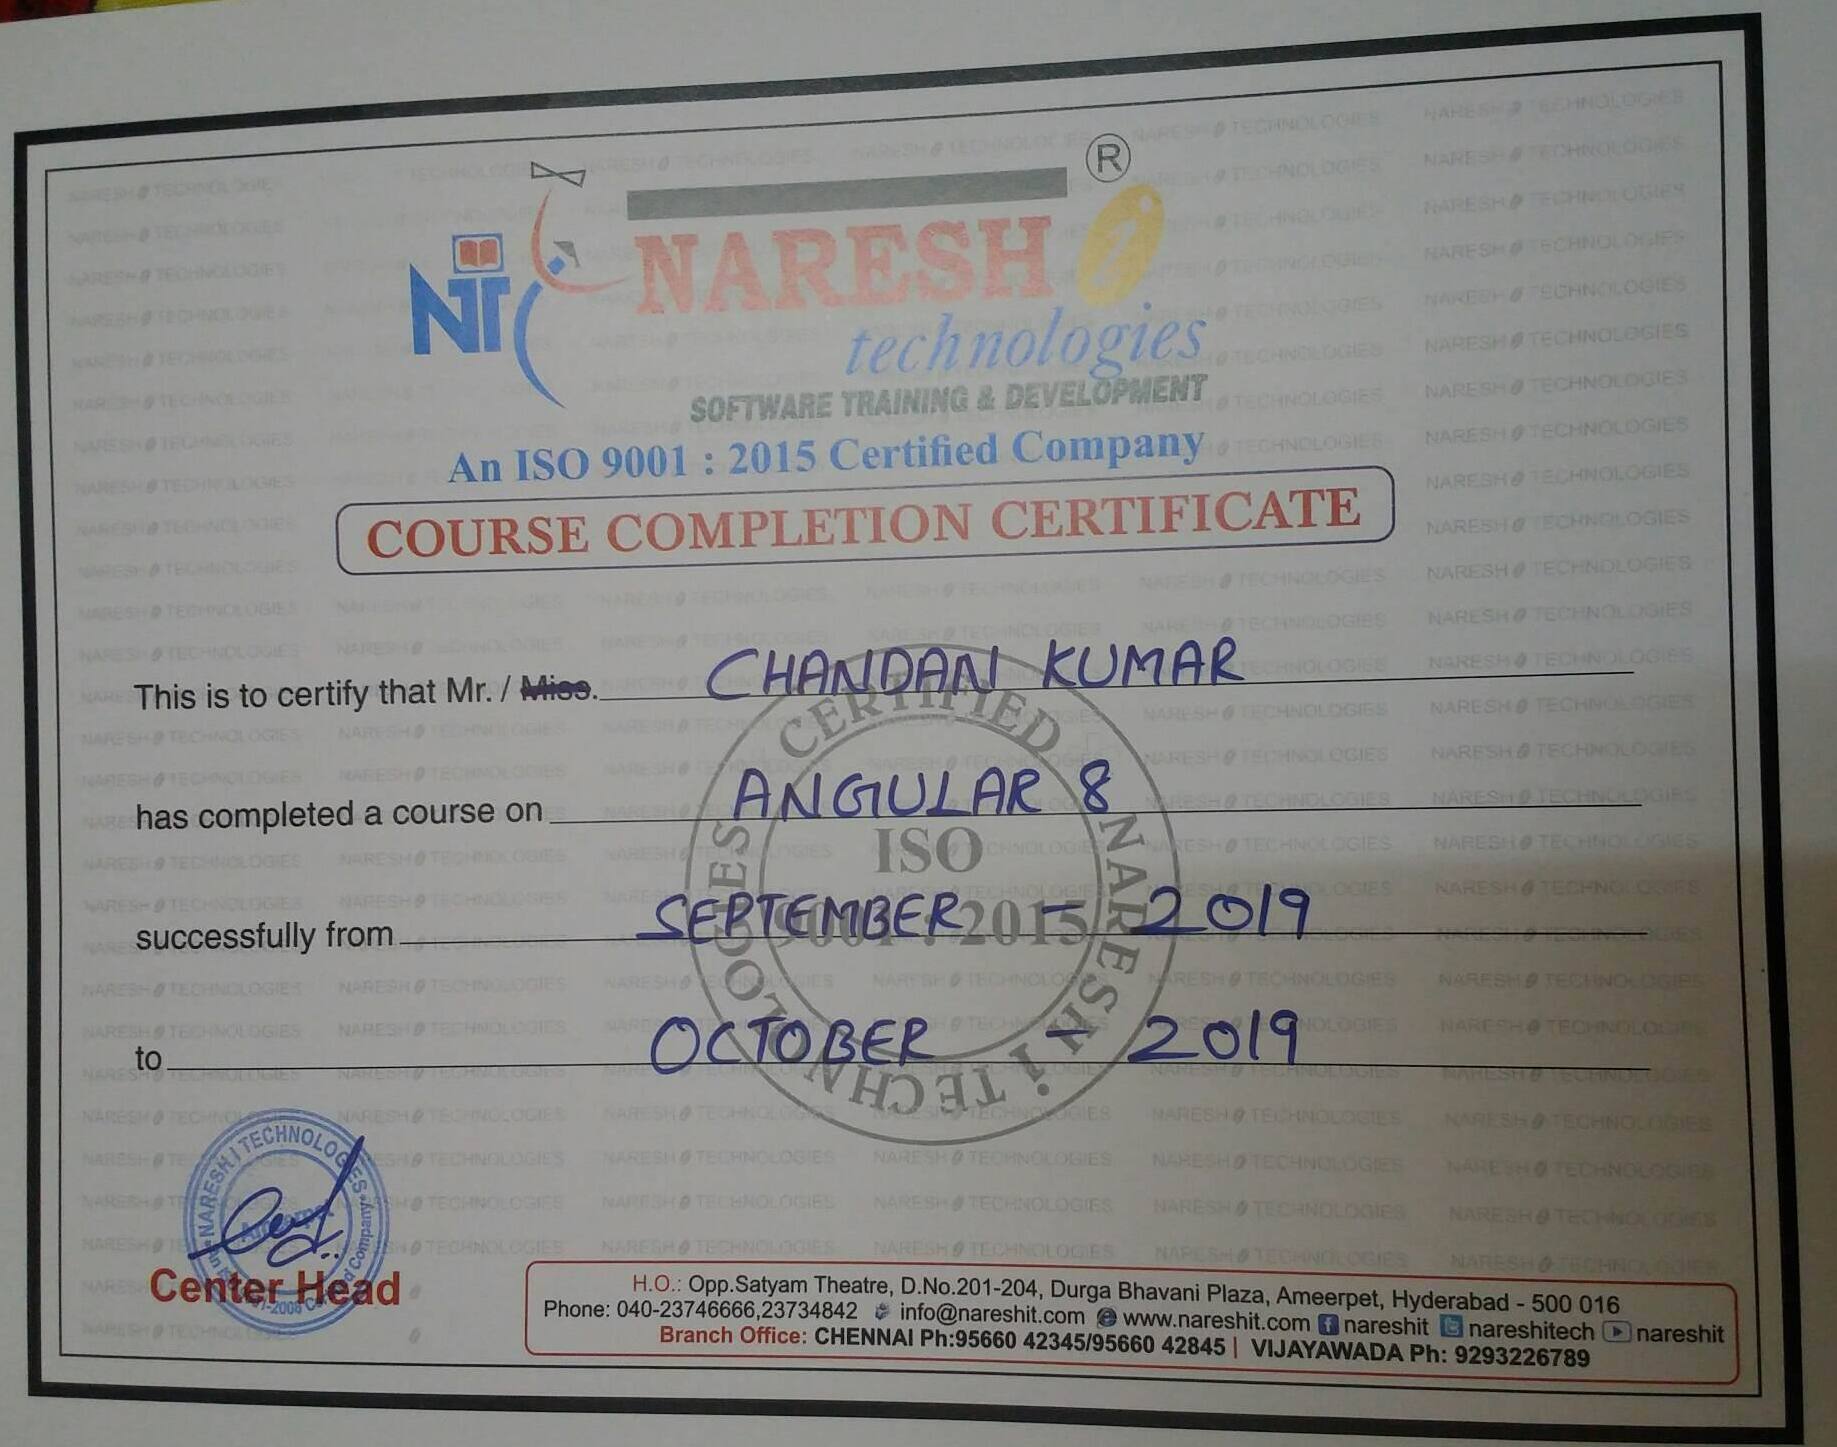 ®
NARESH i
NTC
technologies
SOFTWARE TRAINING & DEVELOPMENT
An ISO 9001 : 2015 Certified Company
COURSE COMPLETION CERTIFICATE
This is to certify that Mr. / Miss. CHANDAN KUMAR
has completed a course on ANGULAR 8
successfully from SEPTEMBER - 2019
to OCTOBER - 2019
CERTIFIED NARESH i TECHNOLOGIES
ISO
9001 : 2015
NARESH i TECHNOLOGIES
Center Head
H.O.: Opp.Satyam Theatre, D.No.201-204, Durga Bhavani Plaza, Ameerpet, Hyderabad - 500 016
Phone: 040-23746666,23734842 info@nareshit.com www.nareshit.com nareshit nareshitech nareshit
Branch Office: CHENNAI Ph:95660 42345/95660 42845 | VIJAYAWADA Ph: 9293226789